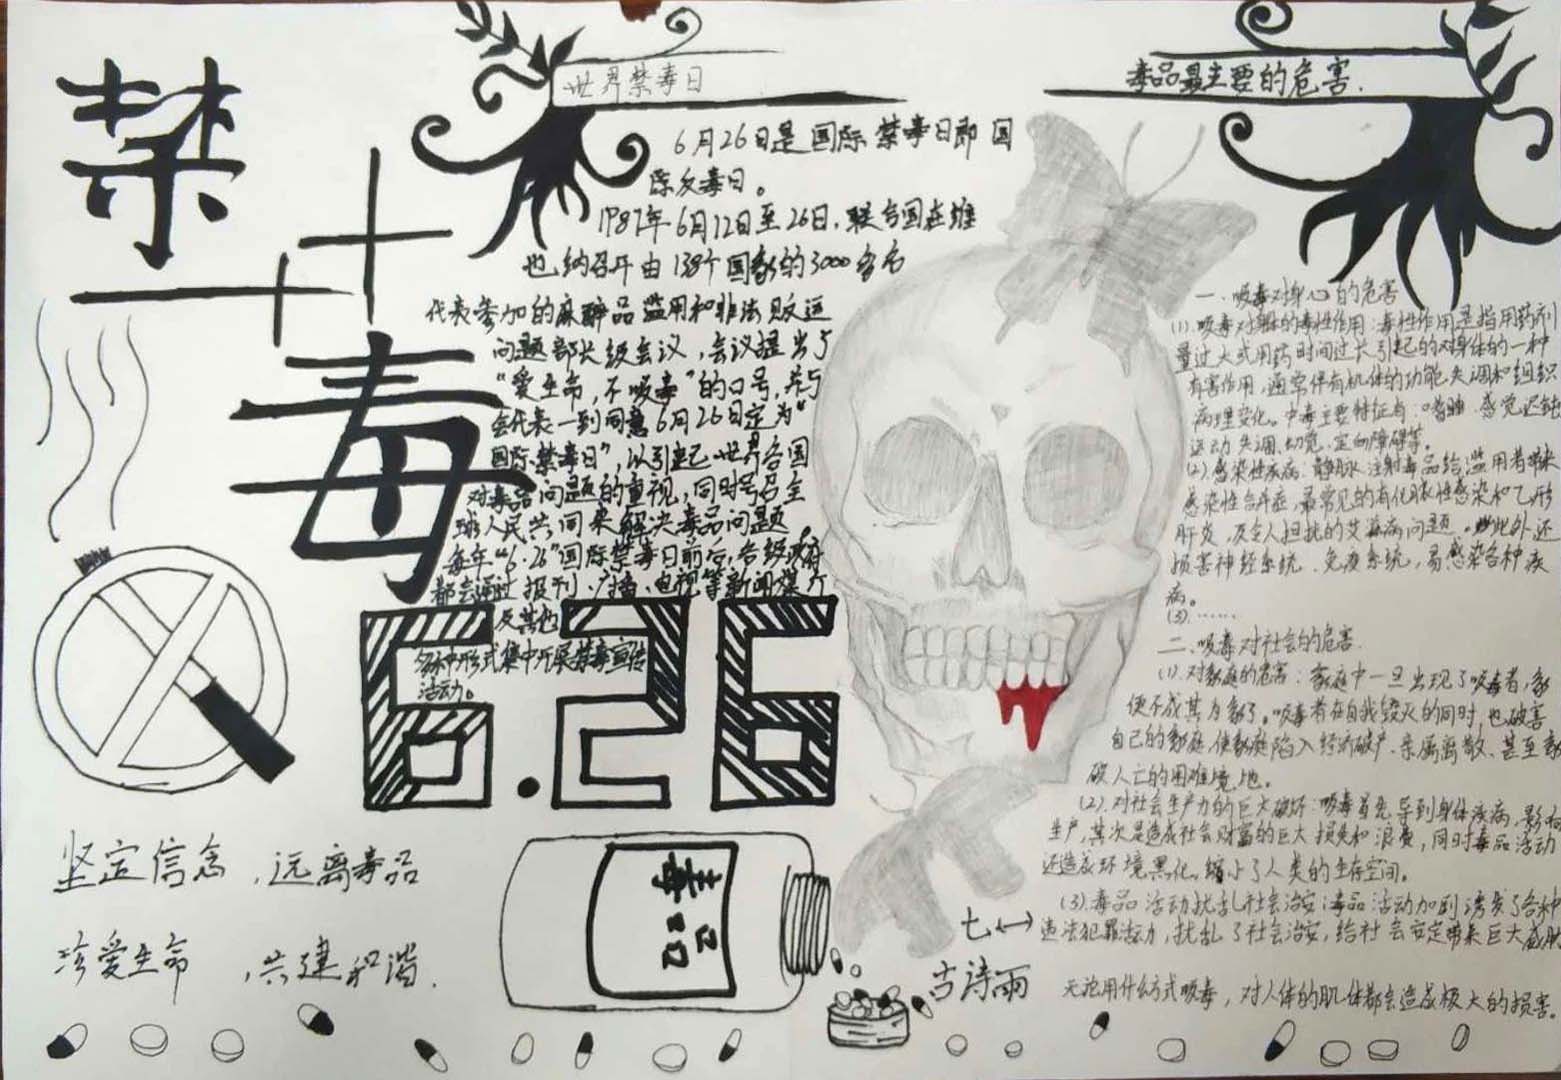 禁
毒
世界禁毒日
6月26日是国际禁毒日即国
际反毒日。
1987年6月12日至26日，联合国在维
也纳召开由138个国家的3000多名
代表参加的麻醉品滥用和非法贩运
问题部长级会议，会议提出了
“爱生命，不吸毒”的口号，并与
会代表一到同意6月26日定为“
国际禁毒日”，以引起世界各国
对毒品问题的重视，同时号召全
球人民共同来解决毒品问题。
每年“6·26”国际禁毒日前后，各级政府
都会通过报刊、广播、电视等新闻媒介
及其他
各种形式集中开展禁毒宣传
活动。
6.26
坚定信念，远离毒品
珍爱生命，共建和谐.
毒品
毒品最主要的危害.
一、吸毒对身心的危害
(1).吸毒对身体的毒性作用：毒性作用是指用药剂
量过大或用药时间过长引起的对身体的一种
有害作用，通常伴有机体的功能失调和组织
病理变化。中毒主要特征有：嗜睡、感觉迟钝
运动失调、幻觉、定向障碍等。
(2).感染性疾病：静脉注射毒品给滥用者带来
感染性合并症，最常见的有化脓性感染和乙形
肝炎，及令人担扰的艾滋病问题。此外还
损害神经系统、免疫系统，易感染各种疾
病。
(3).……
二、吸毒对社会的危害.
(1).对家庭的危害：家庭中一旦出现了吸毒者，家
便不成其为家了。吸毒者在自我毁灭的同时，也破害
自己的家庭，使家庭陷入经济破产、亲属离散、甚至家
破人亡的困难境地。
(2).对社会生产力的巨大破坏：吸毒首先导到身体疾病，影响
生产，其次是造成社会财富的巨大损失和浪费，同时毒品活动
还造成环境黑化，缩小了人类的生存空间。
(3).毒品活动扰乱社会治安：毒品活动加剧诱发了各种
违法犯罪活力，扰乱了社会治安，给社会安定带来巨大威胁
无论用什么方式吸毒，对人体的肌体都会造成极大的损害。
古诗雨